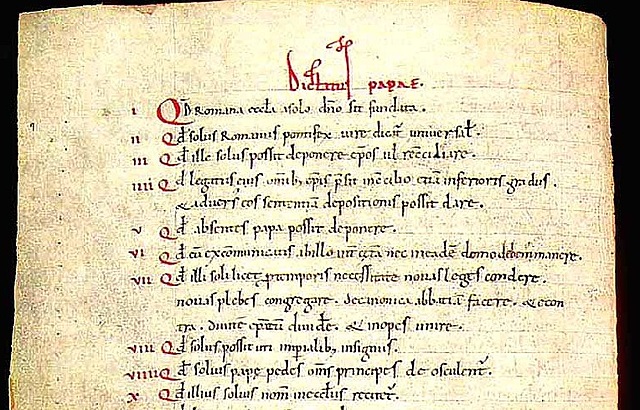 Dictatus papae.
i Qd Romana eccła a solo dño sit fundata.
ii Qđ solus Romanus pontifex iure dicat̃ universal̃.
iii Qđ ille solus possit deponere ep̃os uł reconciliare.
iiii Qđ legatus eius omib; ep̃is p̃sit in concilio etiã inferioris gradus.
& adversus eos sententiã depositionis possit dare.
v Qđ absentes papa possit deponere.
vi Qđ cũ excommunicatis ab illo int̃ cet̃a nec in eadẽ domo debem̃ manere.
vii Qđ illi soli licet p temporis necessitate novas leges condere.
novas plebes congregare. de canonica abbatiã facere. & econ
tra. divitẽ ep̃atũ divide. & inopes unire.
viii Qđ solus possit uti imperialib; insigniis.
viiii Qđ solius pape pedes om̃s principes deosculent̃.
x Qđ illius solius nom̃ in ecclesiis recitet̃.